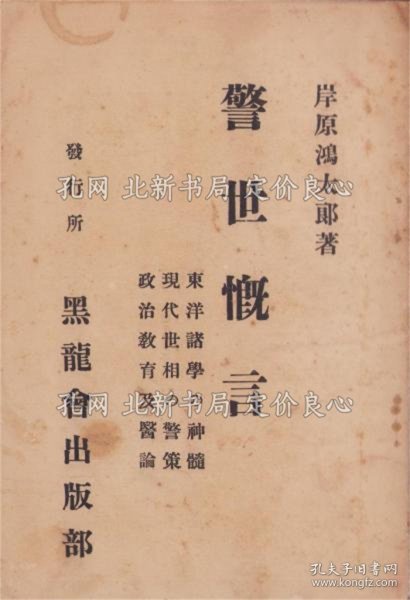 岸原鴻太郎著
警世慨言
東洋諸學の神髓
現代世相の警策
政治教育及醫論
發行所
黑龍會出版部
孔网 北新书局 定价良心
孔网 北新书局 定价良心
孔夫子旧书网